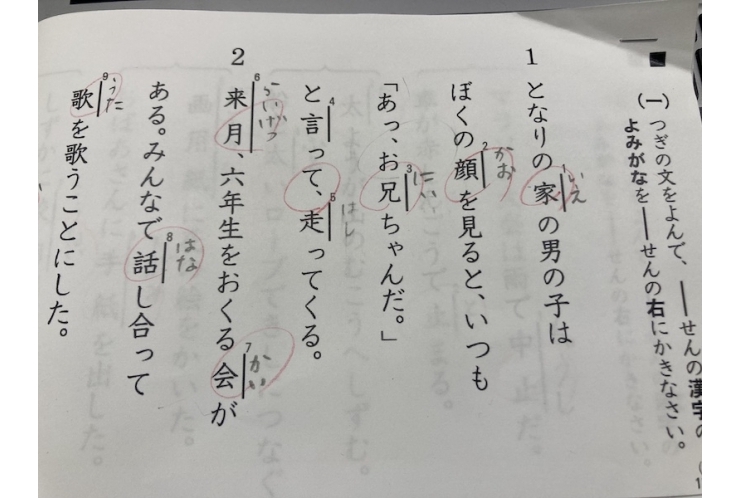 (一) つぎの文をよんで、――せんの漢字の
よみがなを――せんの右にかきなさい。
1 となりの家の男の子は
1 いえ
ぼくの顔を見ると、いつも
2 かお
「あっ、お兄ちゃんだ。」
3 にい
と言って、走ってくる。
4
5 はし
2 来月、六年生をおくる会が
6 らいげつ
7 かい
ある。みんなで話し合って
8 はな
歌を歌うことにした。
9 うた